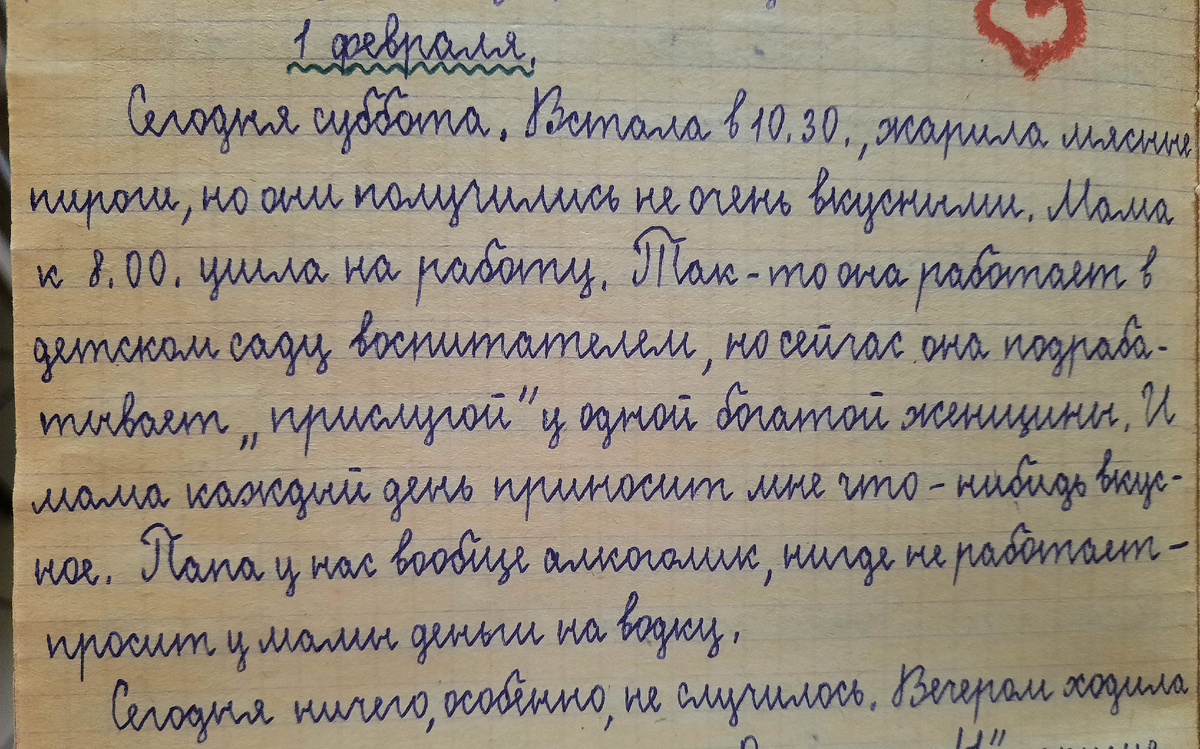 1 февраля.
Сегодня суббота. Встала в 10.30., жарила мясные
пироги, но они получились не очень вкусными. Мама
к 8.00. ушла на работу. Так-то она работает в
детском саду воспитателем, но сейчас она подраба-
тывает „прислугой" у одной богатой женщины. И
мама каждый день приносит мне что-нибидь вкус-
ное. Папа у нас вообще алкоголик, нигде не работает-
просит у мамы деньги на водку.
Сегодня ничего, особенно, не случилось. Вечером ходила